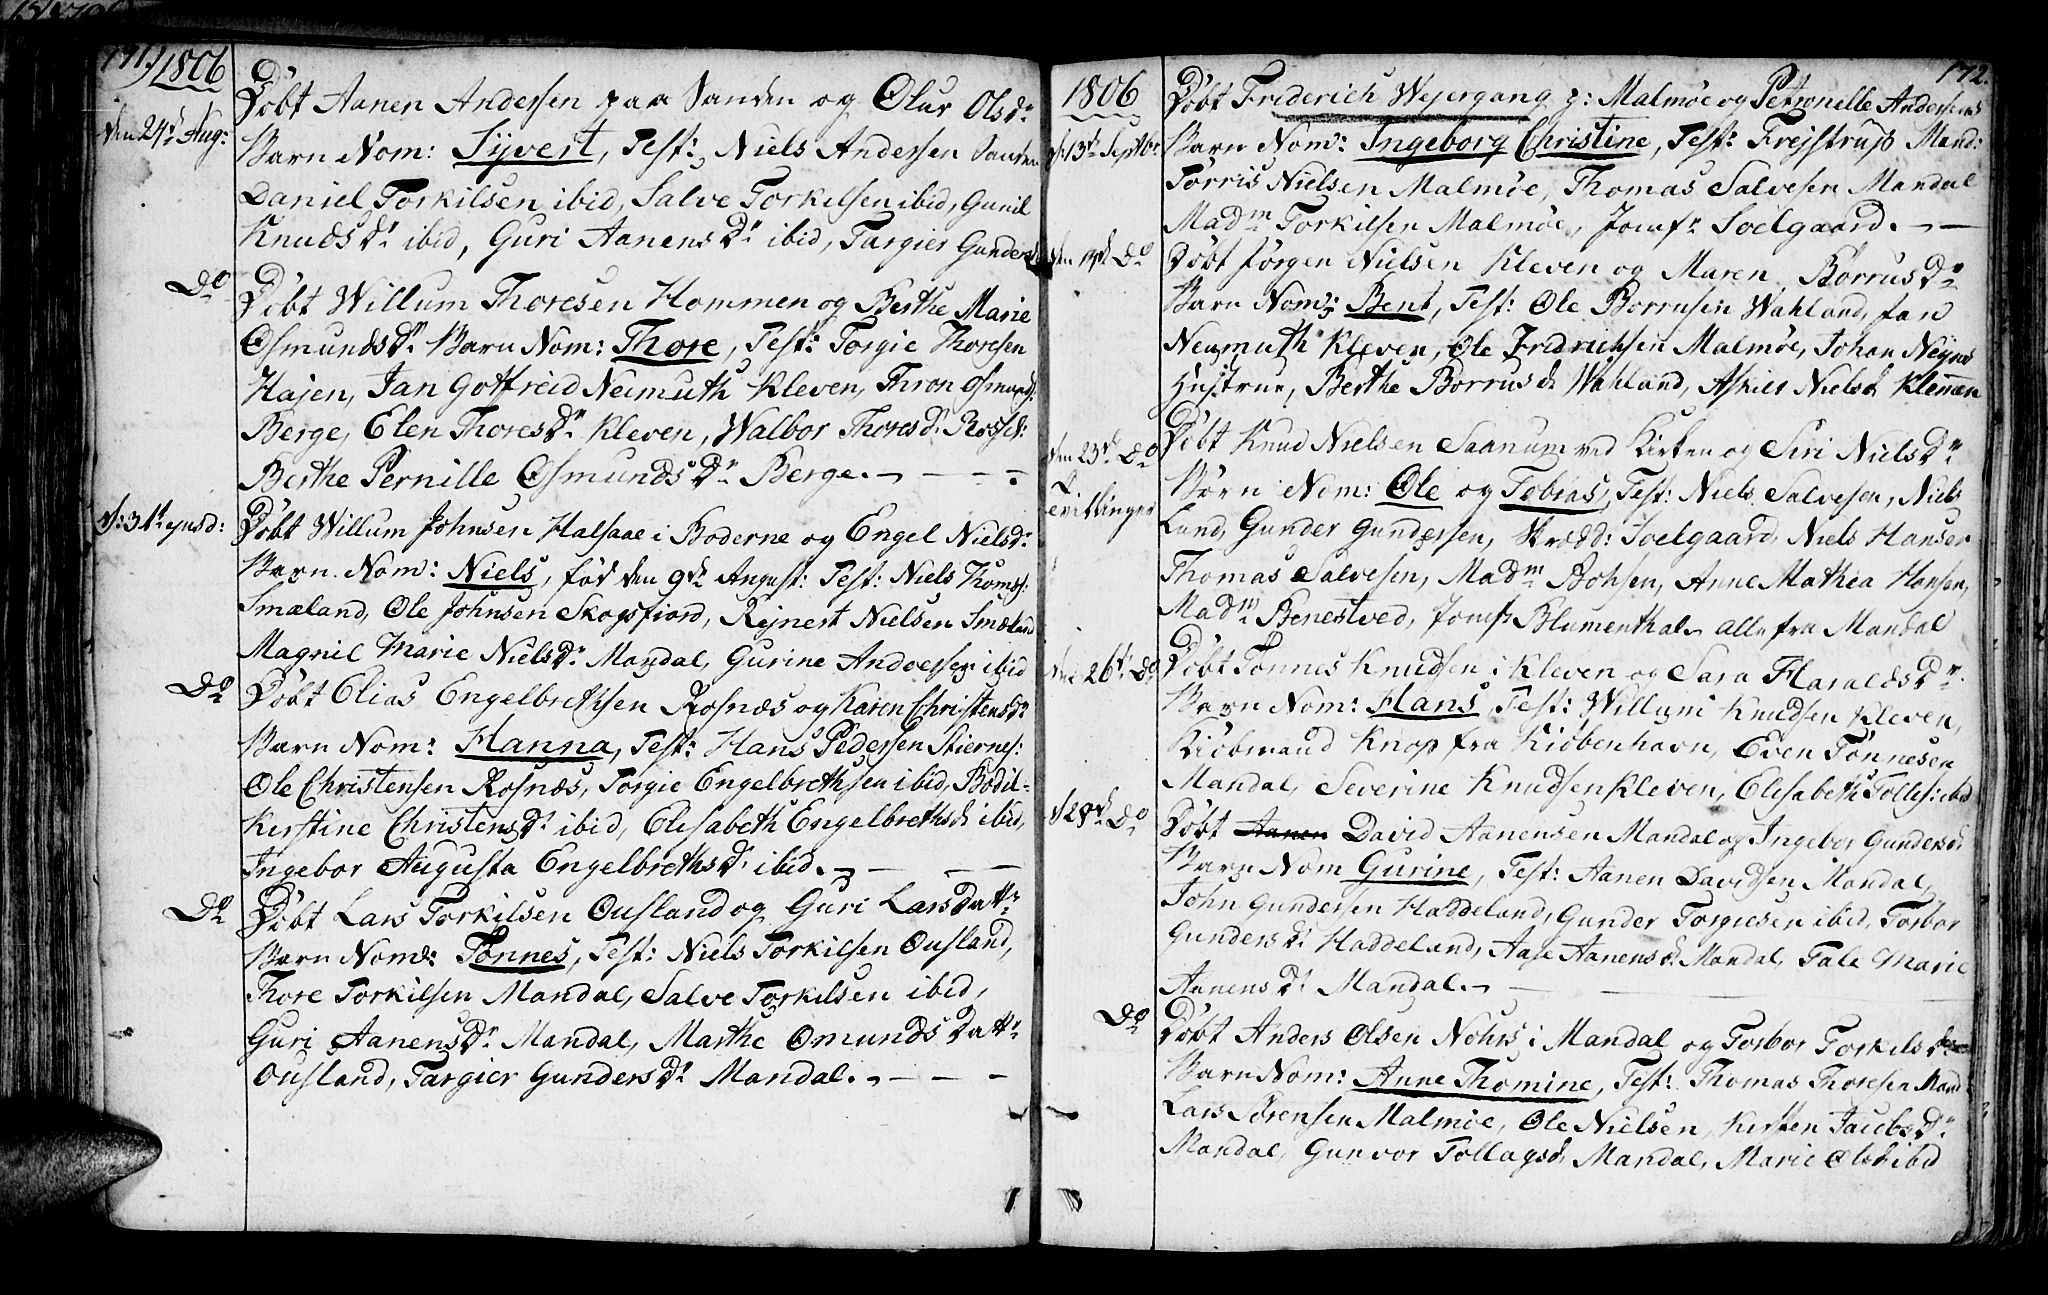 171.) 1806
den 24de Aug:
Døbt Aanen Andersen paa Sanden og Olur Olsdr
Barn Nom: Syvert, Test: Niels Andersen Sanden
Daniel Torkilsen ibid, Salve Torkelsen ibid, Gunil
Knudsdr ibid, Guri Aanensdr ibid, Targier Gunders
Do
Døbt Willum Thoresen Hommen og Berthe Marie
Osmundsdr Barn Nom: Thore, Test: Torgie Thoresen
Hajen, Jan Gotfreid Neimuth Kleven, Thron Osmunds:
Berge, Elen Thoresdr Kleven, Walbor Thoresd: Rossel:
Berthe Pernille Osmundsdr Berge. - - - -
d: 31te ejusd:
Døbt Willum Johnsen Halsaae i Boderne og Engel Nielsdr
Barn Nom: Niels, fød den 9de August: Test: Niels Thomss:
Smæland, Ole Johnsen Skogsfiord, Rejnert Nielsen Smæland
Magnil Marie Nielsdr Mandal, Gurine Andersen ibid
Do
Døbt Elias Engelbrethsen Rosnæs og Karen Christensdr
Barn Nom: Hanna, Test: Hans Pedersen Stiernes:
Ole Christensen Rosnæs, Torgie Engelbrethsen ibid, Bodil-
Kerstine Christensdr ibid, Elesabeth Engelbrethsd ibid,
Ingebor Augusta Engelbrethsdr ibid. - - - -
Do
Døbt Lars Torkilsen Ousland og Guri Larsdattr
Barn Nom: Tønnes, Test: Niels Torkilsen Ousland,
Thore Torkilsen Mandal, Salve Torkelsen ibid,
Guri Aanensdr Mandal, Marthe Omundsdattr
Ousland, Targier Gundersdr Mandal. - - - -
172.
1806
d: 13de Septbr
Døbt Friderich Wejergang g: Malmøe og Petronelle Andersens
Barn Nom: Ingeborg Christine, Test: Frejstrup Mand:
Torris Nielsen Malmøe, Thomas Salvesen Mandal
Madm Torkilsen Malmøe, Jomfr Soelgaard. - -
den 14de Do
Døbt Jørgen Nielsen Kleven og Maren Børrusdr
Barn Nom: Bent, Test: Ole Borrusen Wahland, Jan
Neumuth Kleven, Ole Fridrichsen Malmøe, Johan
Hustrue, Berthe Borrusd Wahland, Nielsd
den 23de Do
Tvillinger
Døbt Knud Nielsen Saanum ved Kirken og Siri Nielsdr
Børn Nom: Ole og Tobias, Test: Niels Salvesen, Niels
Lund, Gunder Gundersen, Skrædd: Soelgaard, Niels Hansen
Thomas Salvesen, Madm Bohsen, Anne Mathea Hansen,
Madm Benestved, Jomfr Blumenthal, alle fra Mandal
den 26de Do
Døbt Tønnes Knudsen i Kleven og Sara Haraldsdr.
Barn Nom: Hans, Test: Willum Knudsen Kleven,
Kiøbmand Knop fra Kiøbenhavn, Even Tønnesen
Mandal, Severine Knudsen Kleven, Elesabeth Tolles: ibid
d 28de Do
Døbt Aanen David Aanensen Mandal og Ingebor Gundersd
Barn Nom Gurine, Test: Aanen Davidsen Mandal,
John Gundersen Haddeland, Gunder Torgiesen ibid, Torbor
Gundersdr Haddeland, Aase Aanensd. Mandal, Tale Marie
Aanensdr Mandal. - - - -
Do
Døbt Anders Olsen Nohrs i Mandal og Torbor Torkilsdr
Barn Nom: Anne Thomine, Test: Thomas Thoresen Mand
Lars Sørensen Malmøe, Ole Nielsen, Kersten Jacobsdr
Mandal, Gunvor Tollagsd, Mandal, Marie Olsd ibid